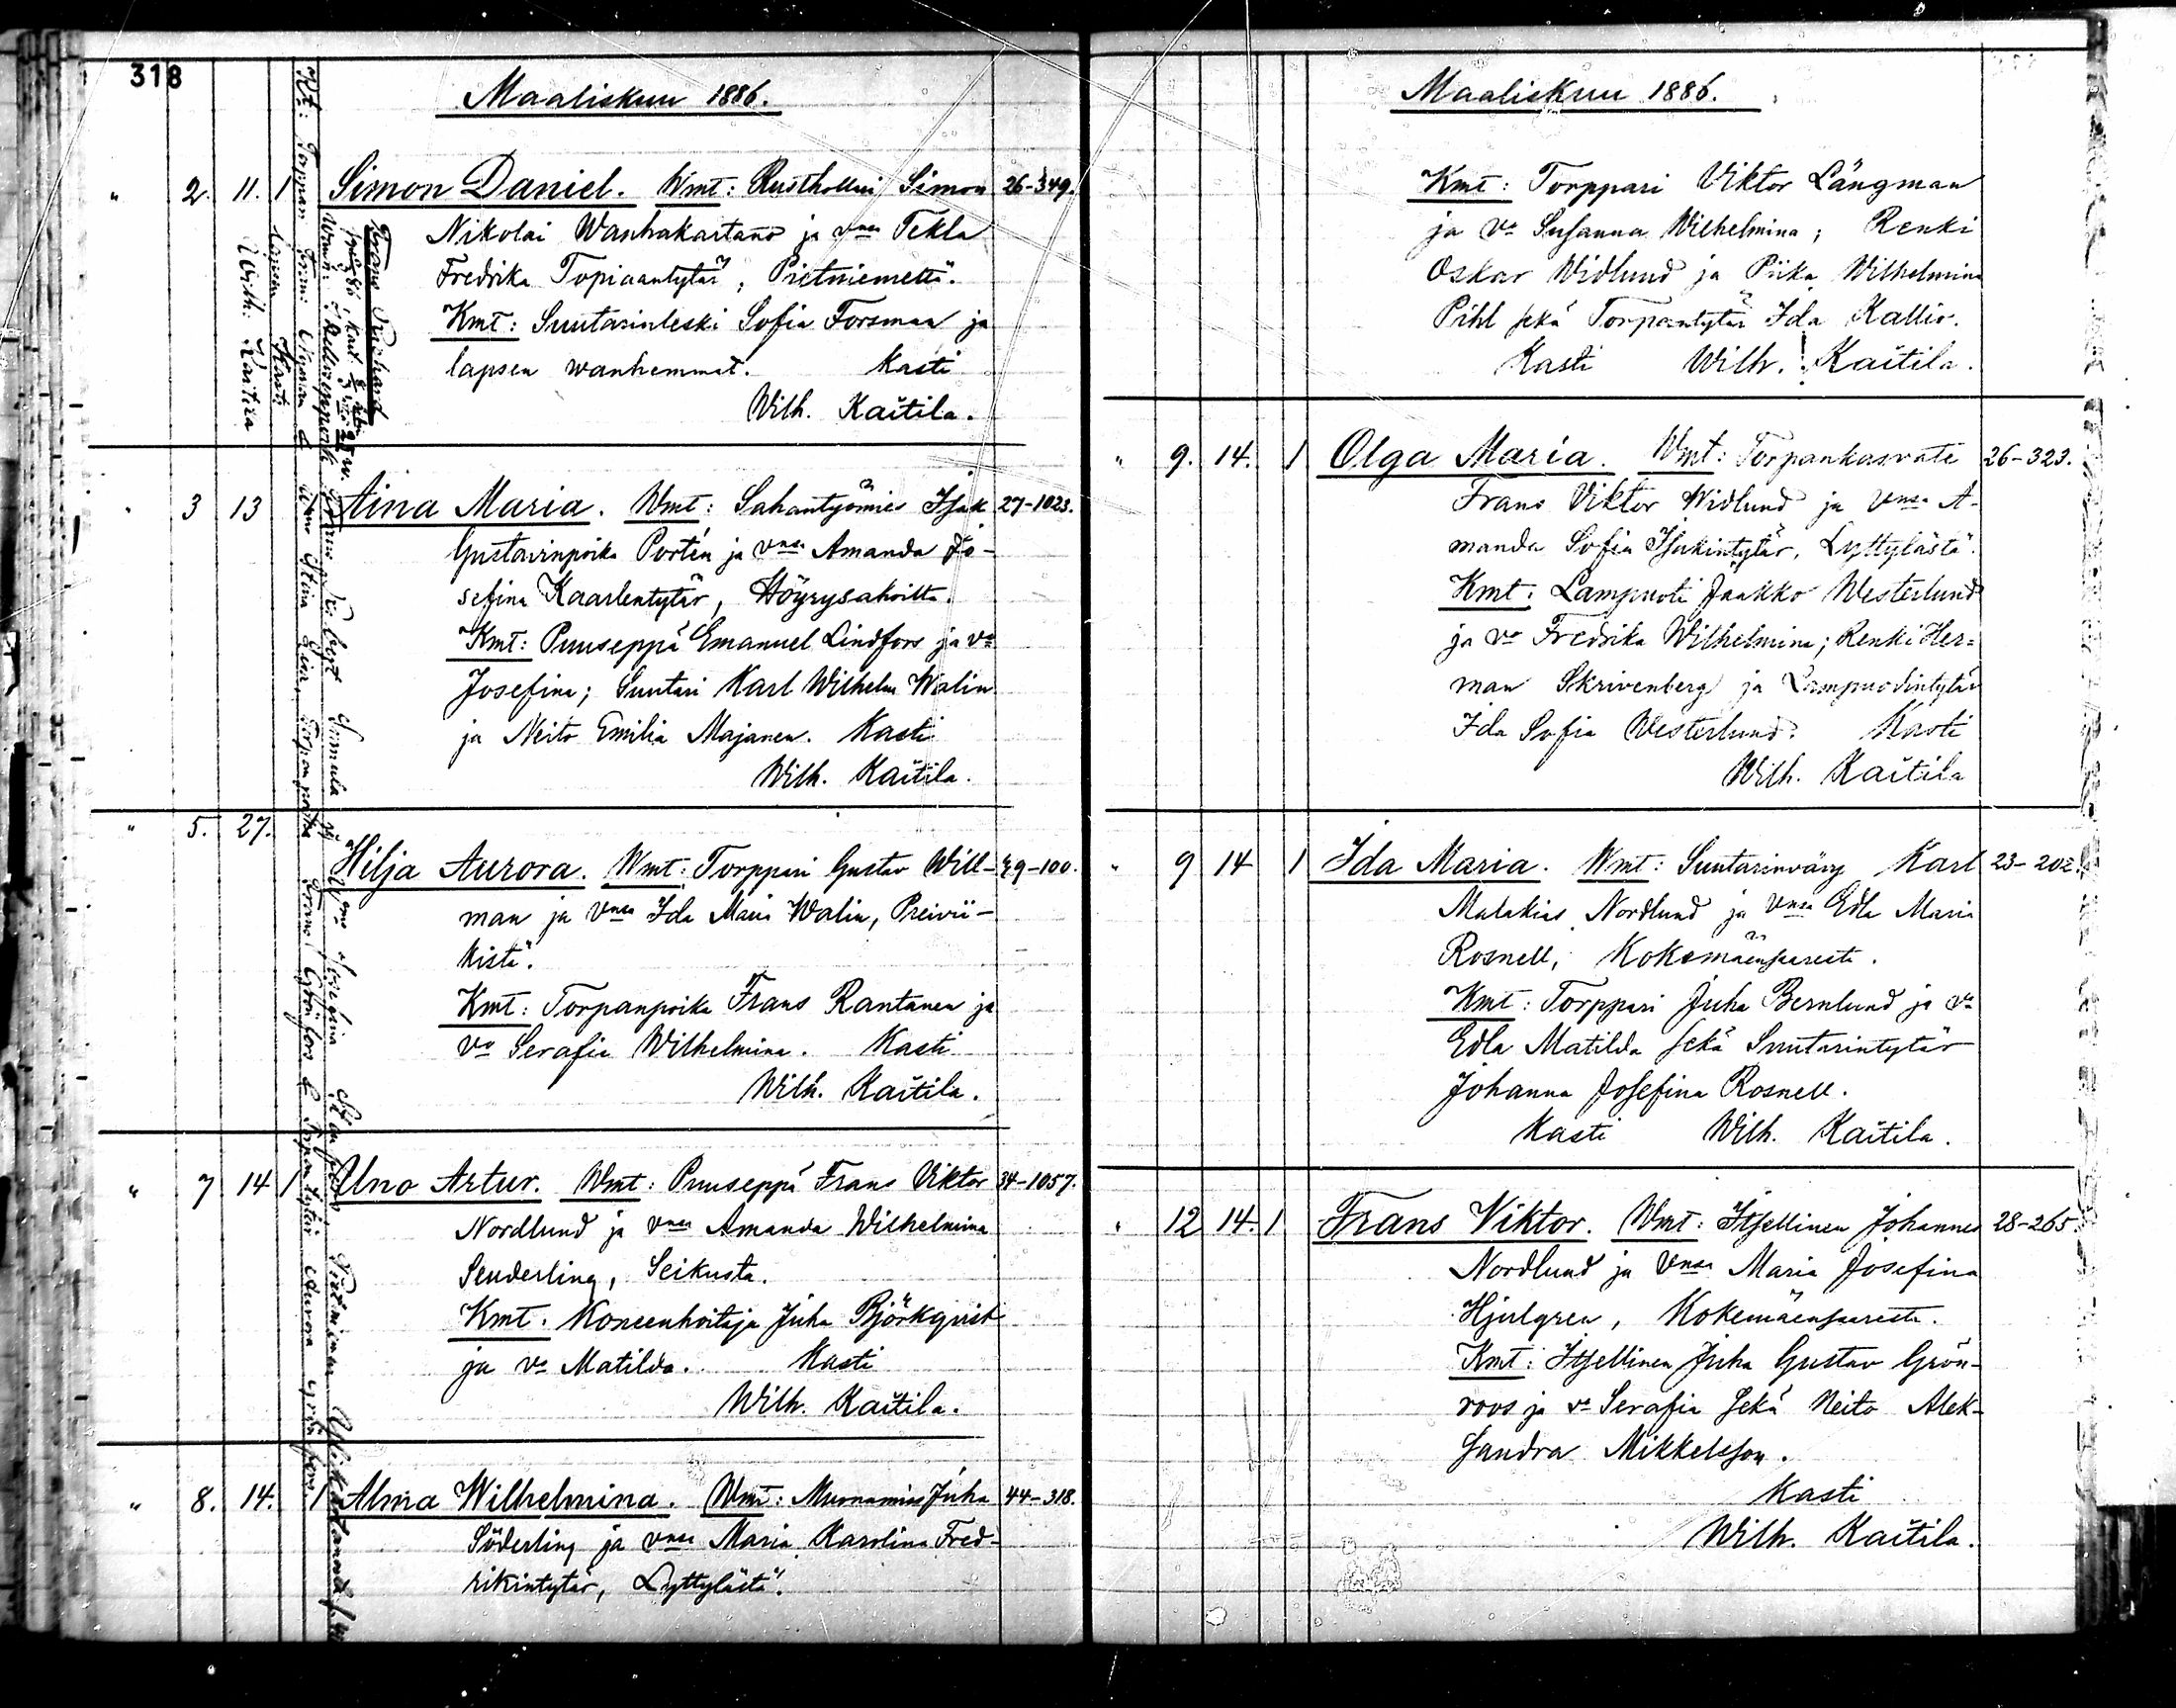 318
Maaliskuu 1886.
" 2. 11. 1 Simon Daniel. Wmt: Rusthollari Simon 26-349.
Nikolai Wanhakartano ja vnsa Tekla
Fredrika Topiaantytär, Pietniemeltä.
Kmt: Suutarinleski Sofia Forsman ja
lapsen wanhemmat. Kasti
Wilh. Kaitila.
" 3 13 Aina Maria. Wmt: Sahantyömies Isak 27-1023.
Gustavinpoika Portén ja vnsa Amanda Jo-
sefina Kaarlentytär, Höyrysahoilta.
Kmt: Puuseppä Emanuel Lindfors ja va
Josefina; Suutari Karl Wilhelm Walin
ja Neito Emilia Majanen. Kasti
Wilh. Kaitila.
" 5. 27. Hilja Aurora. Wmt: Torppari Gustav Will- 49-100.
man ja vnsa Ida Maria Walin, Preivii-
kistä.
Kmt: Torpanpoika Frans Rantanen ja
va Serafia Wilhelmina. Kasti
Wilh. Kaitila.
" 7 14 1 Uno Artur. Wmt: Puuseppä Frans Viktor 34-1057.
Nordlund ja vnsa Amanda Wilhelmina
Senderling, Seikusta.
Kmt. Koneenhoitaja Juha Björkqvist
ja va Matilda. Kasti
Wilh. Kaitila.
" 8. 14. 1 Alma Wilhelmina. Wmt: Muonamies Juha 44-318.
Söderling ja vnsa Maria Karolina Fred-
rikintytär, Lyttylästä.
Frans Richard
Wilh: Kaitila
Maaliskuu 1886.
Kmt: Torppari Viktor Långman
ja va Susanna Wilhelmina; Renki
Oskar Widlund ja Piika Wilhelmina
Pihl sekä Torpantytär Ida Kallio.
Kasti Wilh. Kaitila.
" 9. 14. 1 Olga Maria. Wmt: Torpankasvatti 26-323.
Frans Viktor Widlund ja vnsa A-
manda Sofia Isakintytär, Lyttylästä.
Kmt: Lampuoti Jaakko Westerlund
ja va Fredrika Wilhelmina; Renki Her=
man Skrivenberg ja Lampuodintytär
Ida Sofia Westerlund. Kasti
Wilh. Kaitila
" 9 14 1 Ida Maria. Wmt: Suutarinvävy Karl 23-202.
Malakias Nordlund ja vnsa Edla Maria
Rosnell, Kokemäensaaresta.
Kmt: Torppari Juha Bernlund ja va
Edla Matilda sekä Suutarintytär
Johanna Josefina Rosnell.
Kasti Wilh. Kaitila.
" 12 14. 1 Frans Viktor. Wmt: Itsellinen Johannes 28-265.
Nordlund ja vnsa Maria Josefina
Hjulgren, Kokemäensaaresta.
Kmt: Itsellinen Juha Gustav Grön-
roos ja va Serafia sekä Neito Alek-
sandra Mikkelsson.
Kasti
Wilh. Kaitila.